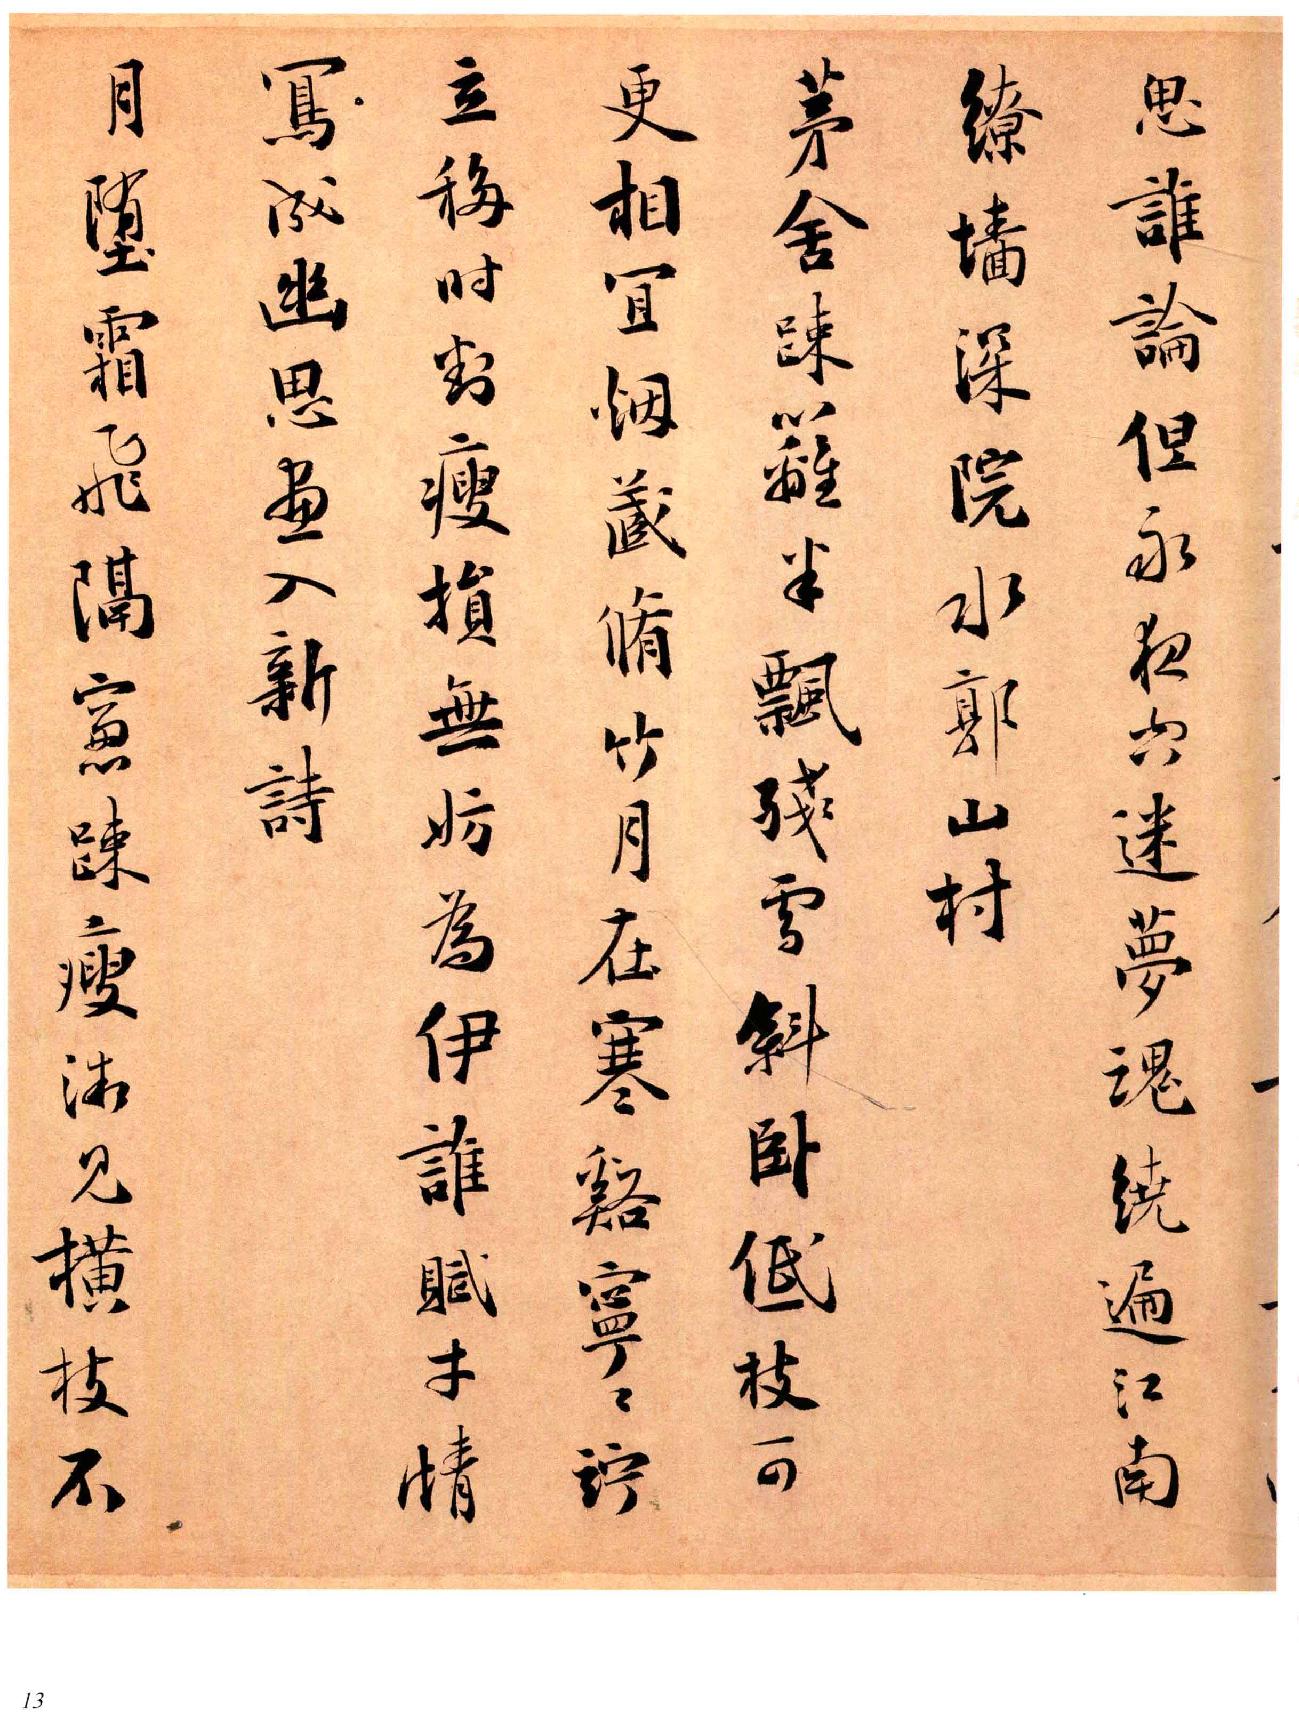 思誰論但永夜穴迷夢魂繞遍江南
繚墻深院水郭山村
茅舍踈籬半飄殘雪斜卧低枝可
更相宜烟藏脩竹月在寒谿寧寧竚
立移时對瘦損無妨為伊誰賦才情
寫成幽思畫入新詩
月墮霜飛隔窻踈瘦㣲見橫枝不
13